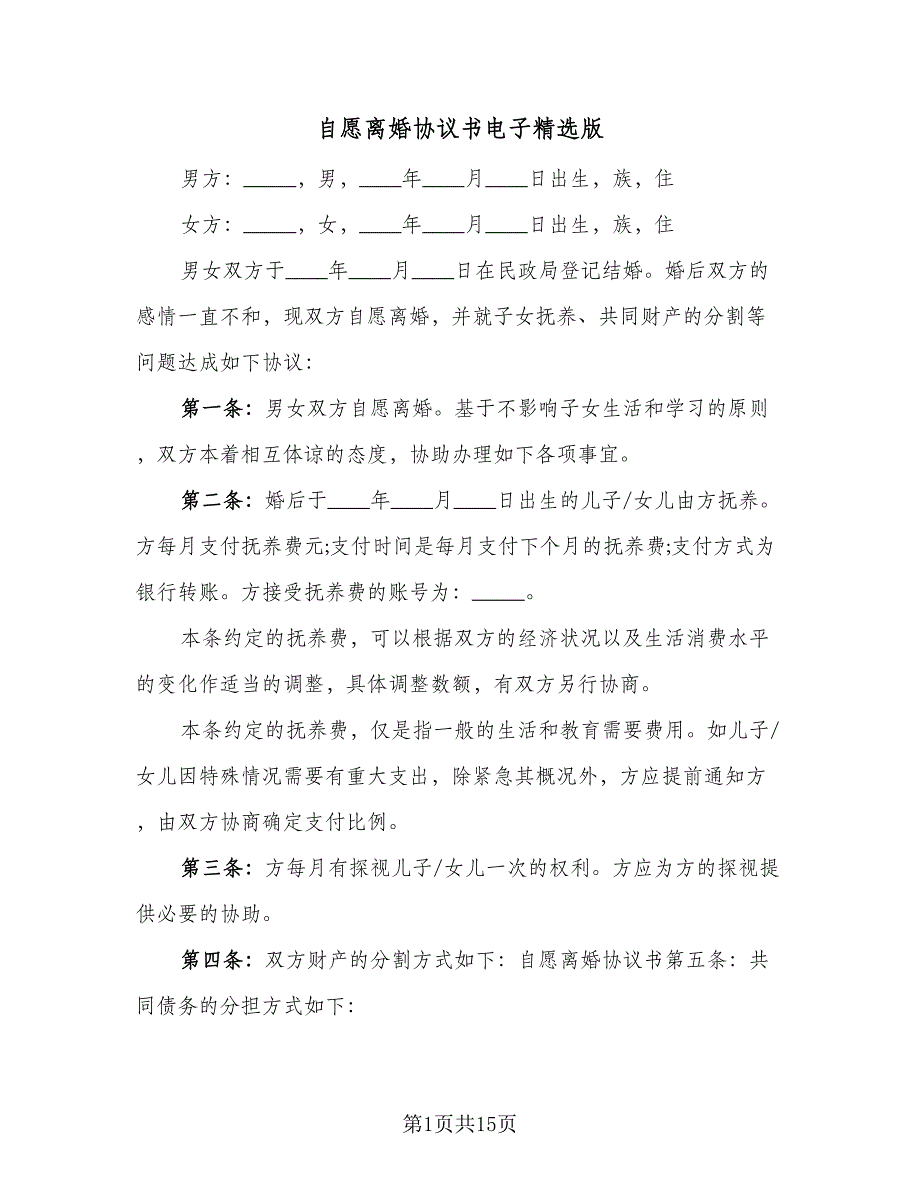 自愿离婚协议书电子精选版
男方：_____，男，____年____月____日出生，族，住
女方：_____，女，____年____月____日出生，族，住
男女双方于____年____月____日在民政局登记结婚。婚后双方的
感情一直不和，现双方自愿离婚，并就子女抚养、共同财产的分割等
问题达成如下协议：
第一条：男女双方自愿离婚。基于不影响子女生活和学习的原则
，双方本着相互体谅的态度，协助办理如下各项事宜。
第二条：婚后于____年____月____日出生的儿子/女儿由方抚养。
方每月支付抚养费元;支付时间是每月支付下个月的抚养费;支付方式为
银行转账。方接受抚养费的账号为：_____。
本条约定的抚养费，可以根据双方的经济状况以及生活消费水平
的变化作适当的调整，具体调整数额，有双方另行协商。
本条约定的抚养费，仅是指一般的生活和教育需要费用。如儿子/
女儿因特殊情况需要有重大支出，除紧急其概况外，方应提前通知方
，由双方协商确定支付比例。
第三条：方每月有探视儿子/女儿一次的权利。方应为方的探视提
供必要的协助。
第四条：双方财产的分割方式如下：自愿离婚协议书第五条：共
同债务的分担方式如下：
第1页共15页